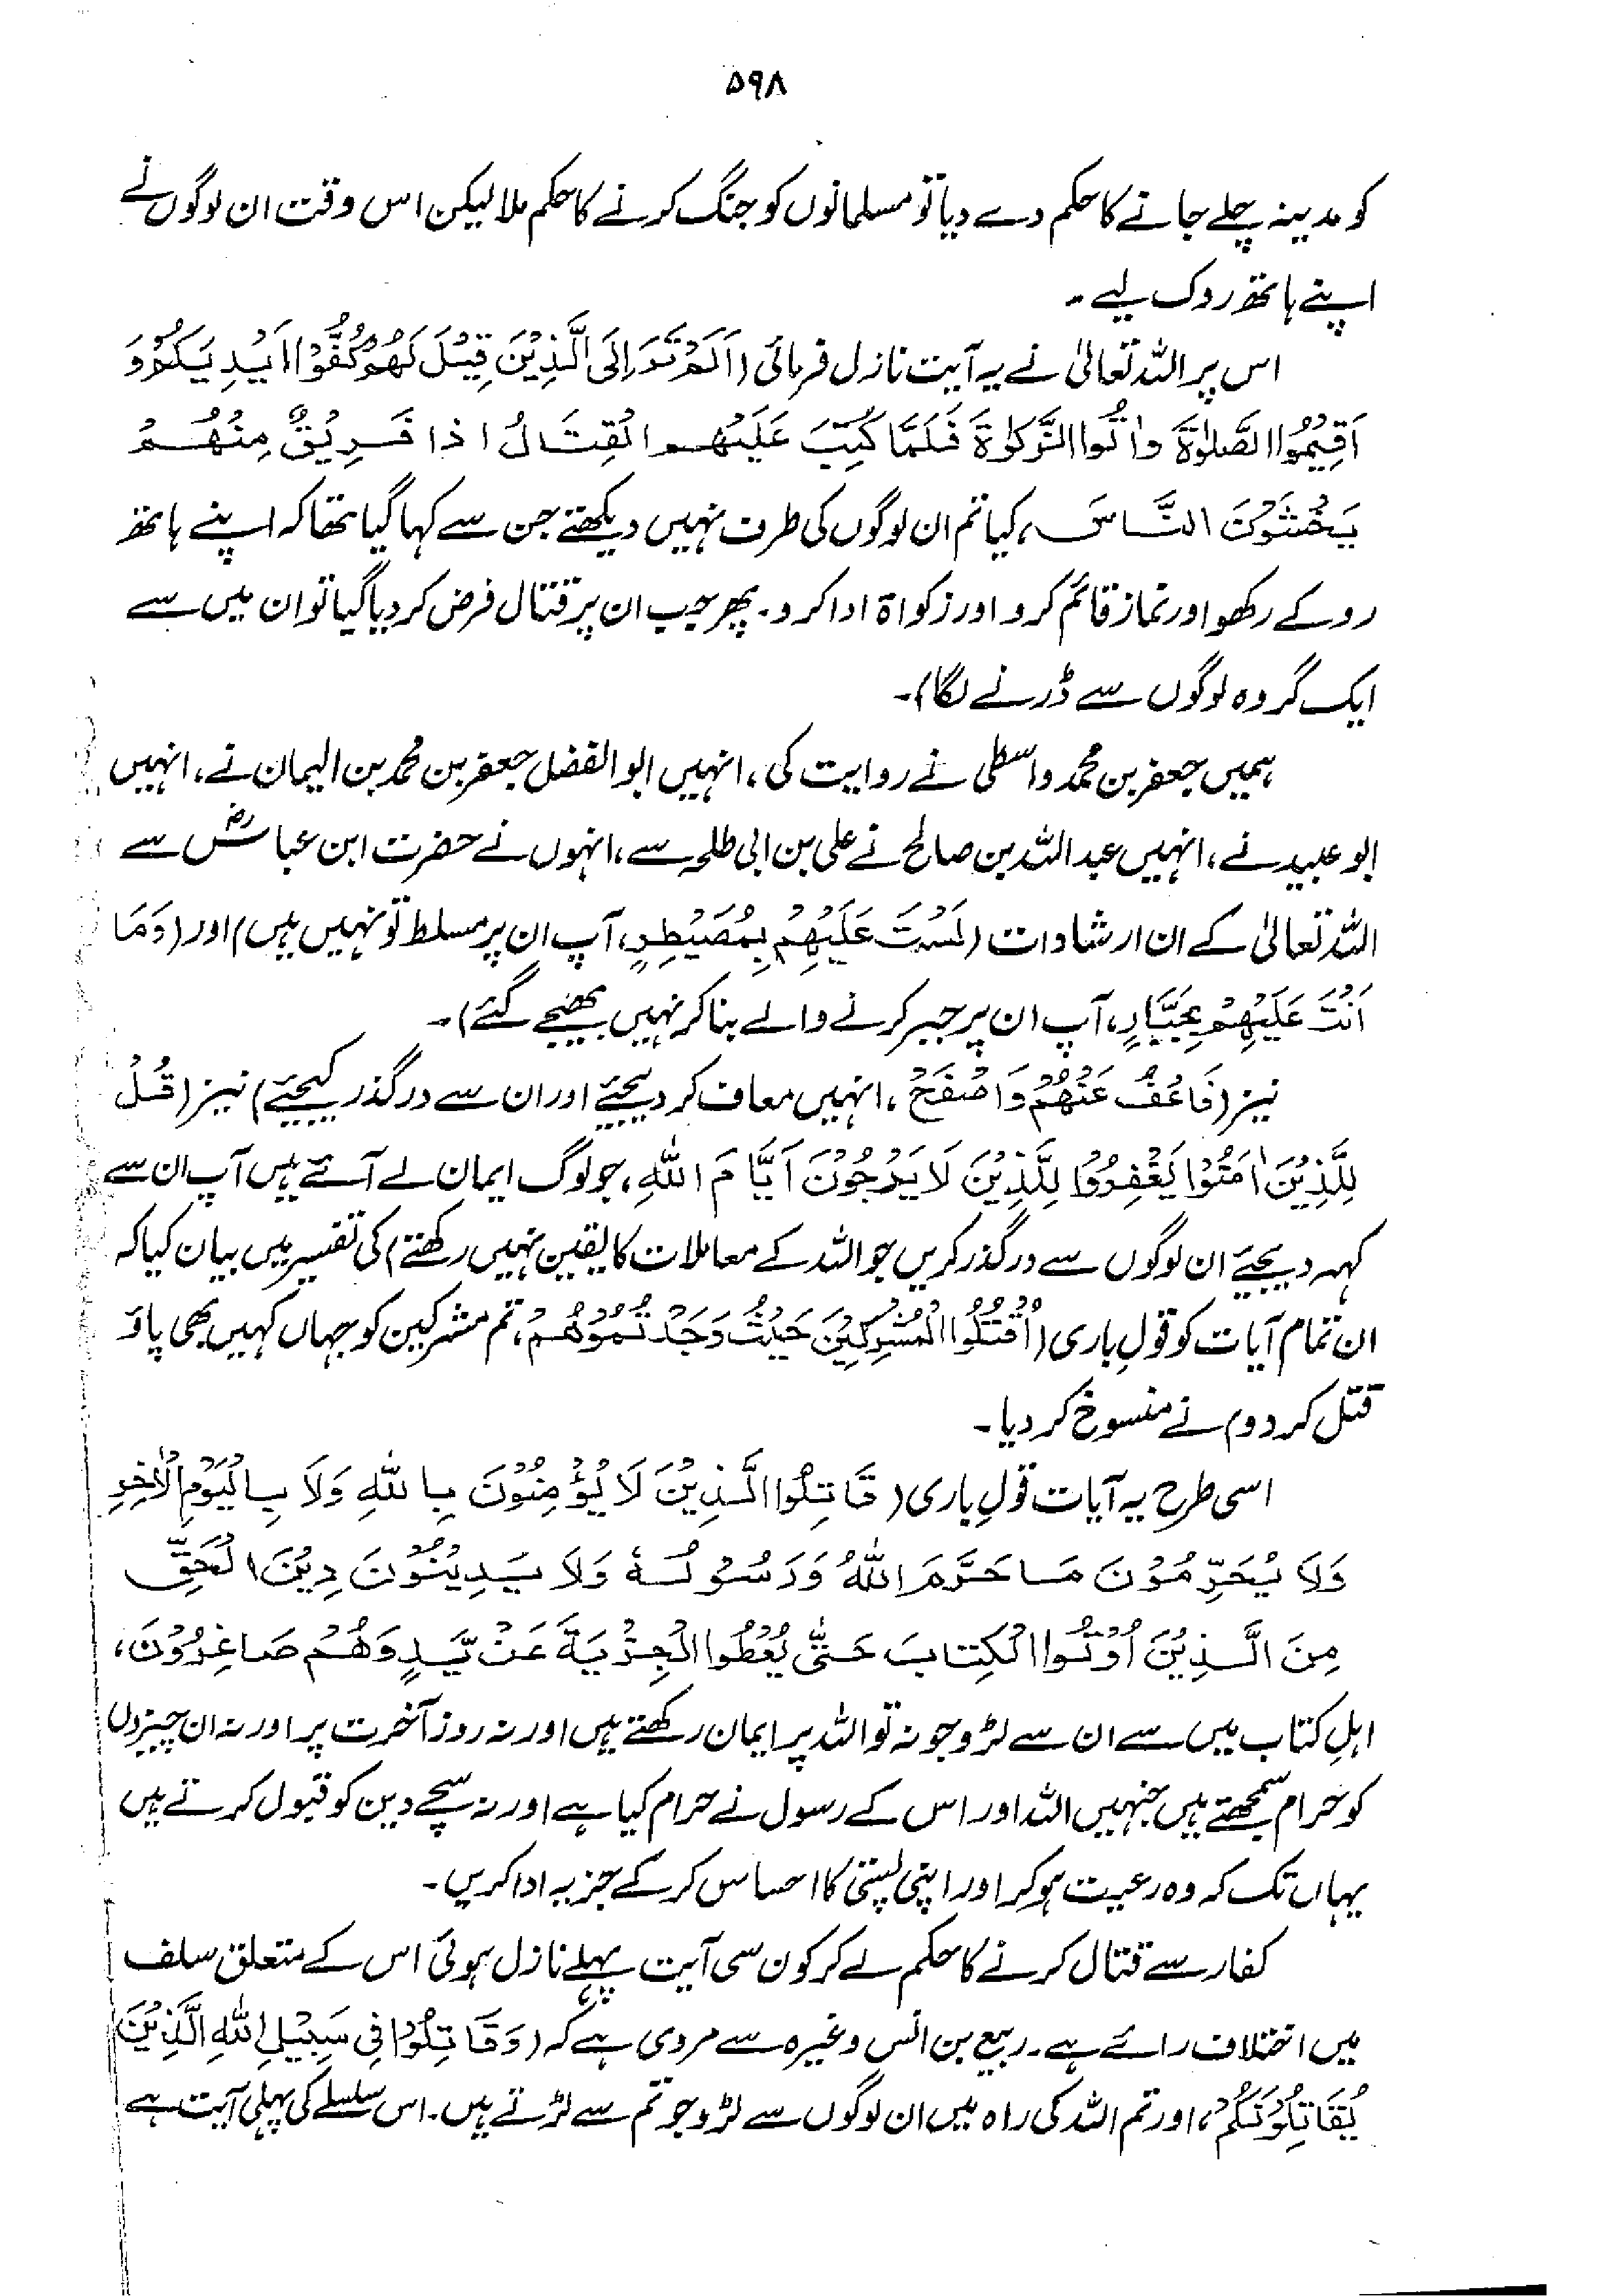 ۵۹۸
کو مدینہ چلے جانے کا حکم دے دیا تو مسلمانوں کو جنگ کرنے کا حکم ملا لیکن اس وقت ان لوگوں نے
اپنے ہاتھ روک لیے۔
اس پر اللہ تعالیٰ نے یہ آیت نازل فرمائی (اَلَمْ تَرَ اِلَی الَّذِیْنَ قِیْلَ لَھُمْ کُفُّوْا اَیْدِیَکُمْ وَ
اَقِیْمُوا الصَّلوٰۃَ وَاٰتُوا الزَّکوٰۃَ فَلَمَّا کُتِبَ عَلَیْھِمُ الْقِتَالُ اِذَا فَرِیْقٌ مِنْھُمْ
یَخْشَوْنَ النَّاسَ، کیا تم ان لوگوں کی طرف نہیں دیکھتے جن سے کہا گیا تھا کہ اپنے ہاتھ
روکے رکھو اور نماز قائم کرو اور زکواۃ ادا کرو۔ پھر جب ان پر قتال فرض کر دیا گیا تو ان میں سے
ایک گروہ لوگوں سے ڈرنے لگا)۔
ہمیں جعفر بن محمد واسطی نے روایت کی، انہیں ابو الفضل جعفر بن محمد بن الیمان نے، انہیں
ابو عبید نے، انہیں عبد اللہ بن صالح نے علی بن ابی طلحہ سے، انہوں نے حضرت ابن عباسؓ سے
اللہ تعالیٰ کے ان ارشادات (لَسْتَ عَلَیْھِمْ بِمُصَیْطِرٍ، آپ ان پر مسلط تو نہیں ہیں) اور (وَمَا
اَنْتَ عَلَیْھِمْ بِجَبَّارٍ، آپ ان پر جبر کرنے والے بنا کر نہیں بھیجے گئے)۔
نیز (فَاعْفُ عَنْھُمْ وَاصْفَحْ، انہیں معاف کر دیجئے اور ان سے درگذر کیجئے) نیز (قُلْ
لِلَّذِیْنَ اٰمَنُوْا یَغْفِرُوْا لِلَّذِیْنَ لَا یَرْجُوْنَ اَیَّامَ اللّٰہِ، جو لوگ ایمان لے آئے ہیں آپ ان سے
کہہ دیجئے ان لوگوں سے درگذر کریں جو اللہ کے معاملات کا یقین نہیں رکھتے) کی تفسیر میں بیان کیا کہ
ان تمام آیات کو قولِ باری (اُقْتُلُوا الْمُشْرِکِیْنَ حَیْثُ وَجَدْتُمُوْھُمْ، تم مشرکین کو جہاں کہیں بھی پاؤ
قتل کر دو) نے منسوخ کر دیا۔
اسی طرح یہ آیات قولِ باری (قَاتِلُوا الَّذِیْنَ لَا یُؤْمِنُوْنَ بِاللّٰہِ وَلَا بِالْیَوْمِ الْاٰخِرِ
وَلَا یُحَرِّمُوْنَ مَا حَرَّمَ اللّٰہُ وَرَسُوْلُہٗ وَلَا یَدِیْنُوْنَ دِیْنَ الْحَقِّ
مِنَ الَّذِیْنَ اُوْتُوا الْکِتَابَ حَتّٰی یُعْطُوا الْجِزْیَۃَ عَنْ یَّدٍ وَھُمْ صَاغِرُوْنَ،
اہلِ کتاب میں سے ان سے لڑو جو نہ تو اللہ پر ایمان رکھتے ہیں اور نہ روز آخرت پر اور نہ ان چیزوں
کو حرام سمجھتے ہیں جنہیں اللہ اور اس کے رسول نے حرام کیا ہے اور نہ سچے دین کو قبول کرتے ہیں
یہاں تک کہ وہ رعیت ہو کر اور اپنی پستی کا احساس کر کے جزیہ ادا کریں۔
کفار سے قتال کرنے کا حکم لے کر کون سی آیت پہلے نازل ہوئی اس کے متعلق سلف
میں اختلاف رائے ہے۔ ربیع بن انس وغیرہ سے مروی ہے کہ (وَقَاتِلُوْا فِیْ سَبِیْلِ اللّٰہِ الَّذِیْنَ
یُقَاتِلُوْنَکُمْ، اور تم اللہ کی راہ میں ان لوگوں سے لڑو جو تم سے لڑتے ہیں۔ اس سلسلے کی پہلی آیت ہے